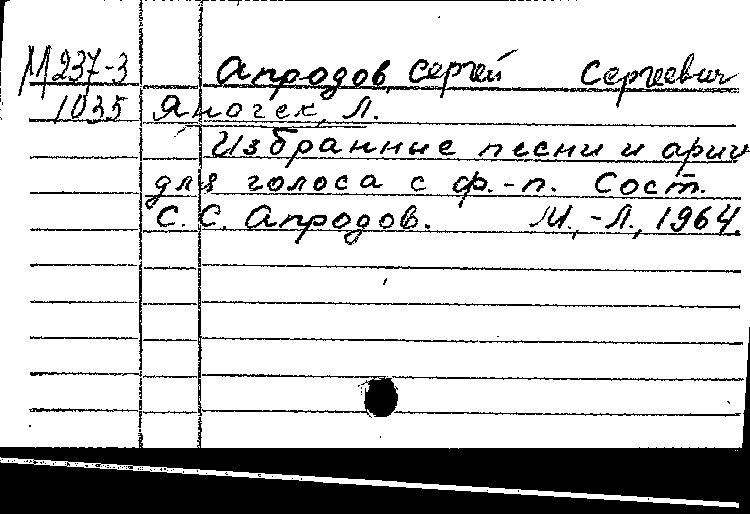 М237-3 Апродов, Сергей Сергеевич
1035 Яначек, Л.
Избранные песни и арии
для голоса с ф.-п. Сост.
С. С. Апродов. М.,-Л., 1964.